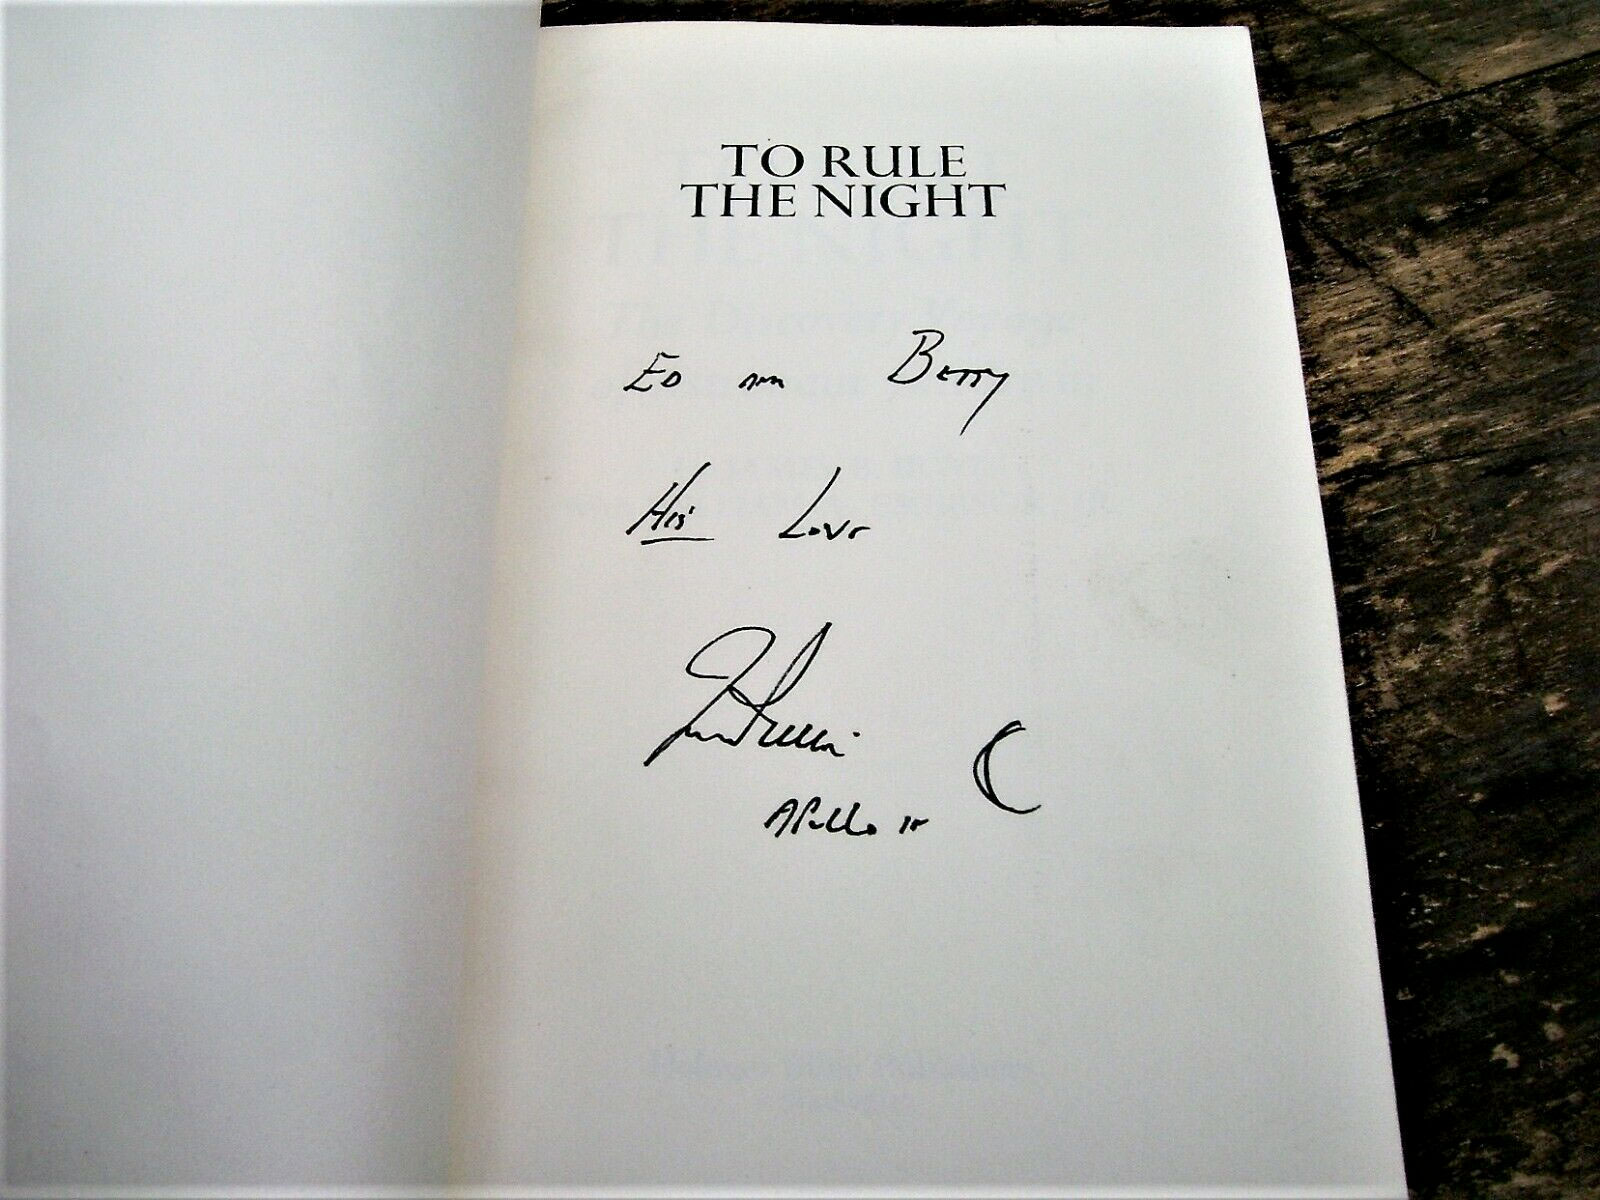 TO RULE
THE NIGHT
ED AND BETTY
HIS LOVE
Jim Irwin
APOLLO 15